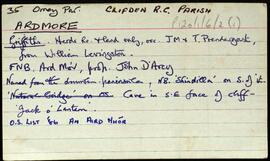 35 Omey Par. CLIFDEN R.C. PARISH
P120/1/6/2 (1)
ARDMORE
Griffith: Herds ho. & land only, occ. J M & T. Prendergast,
from William Levingston
FNB. Ard Mór, prop. John D'Arcy
Named from the dominion peninsula, NB. "Shindilla" on S. of it.
"Natural bridge" on Cave in S.E face of cliff-
"Jack o' Lantern".
O.S. LIST 86 AN AIRD MHÓR